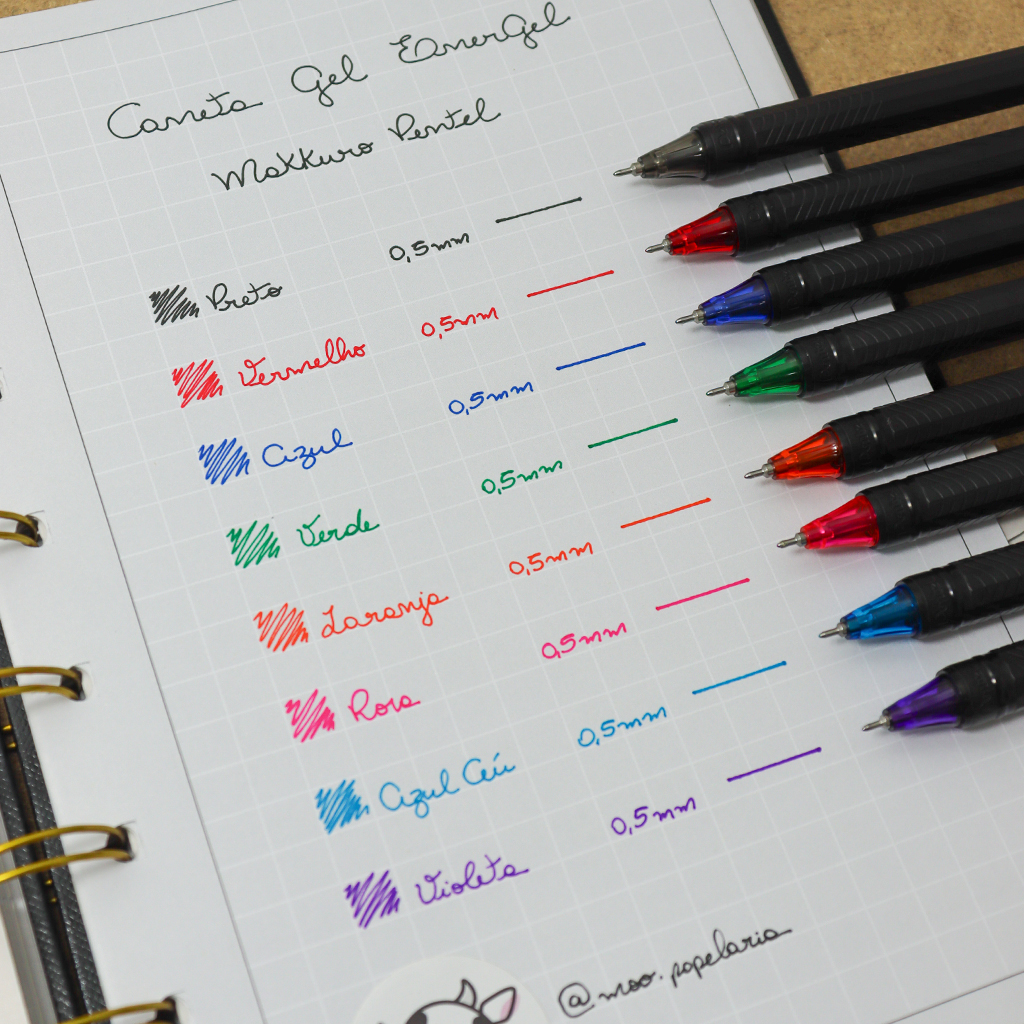 Caneta Gel EnerGel
Makkuro Pentel
Preto 0,5mm
Vermelho 0,5mm
Azul 0,5mm
Verde 0,5mm
Laranja 0,5mm
Rosa 0,5mm
Azul Céu 0,5mm
Violeta 0,5mm
@moo.papelaria